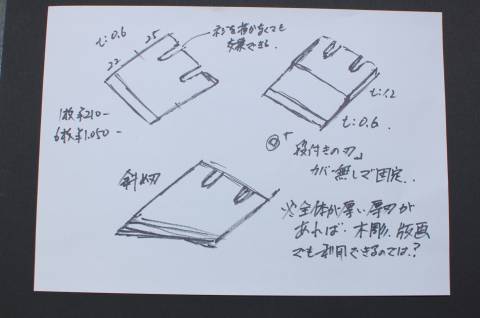 t:0.6
25
22
ネジを抜かなくても
交換できる.
1枚¥210-
6枚¥1.050-
t:1.2
t:0.6
◎「段付きの刃」
カバー無しで固定.
斜め刃
※全体が厚い厚刃が
あれば、木彫、版画
でも利用できるのでは?